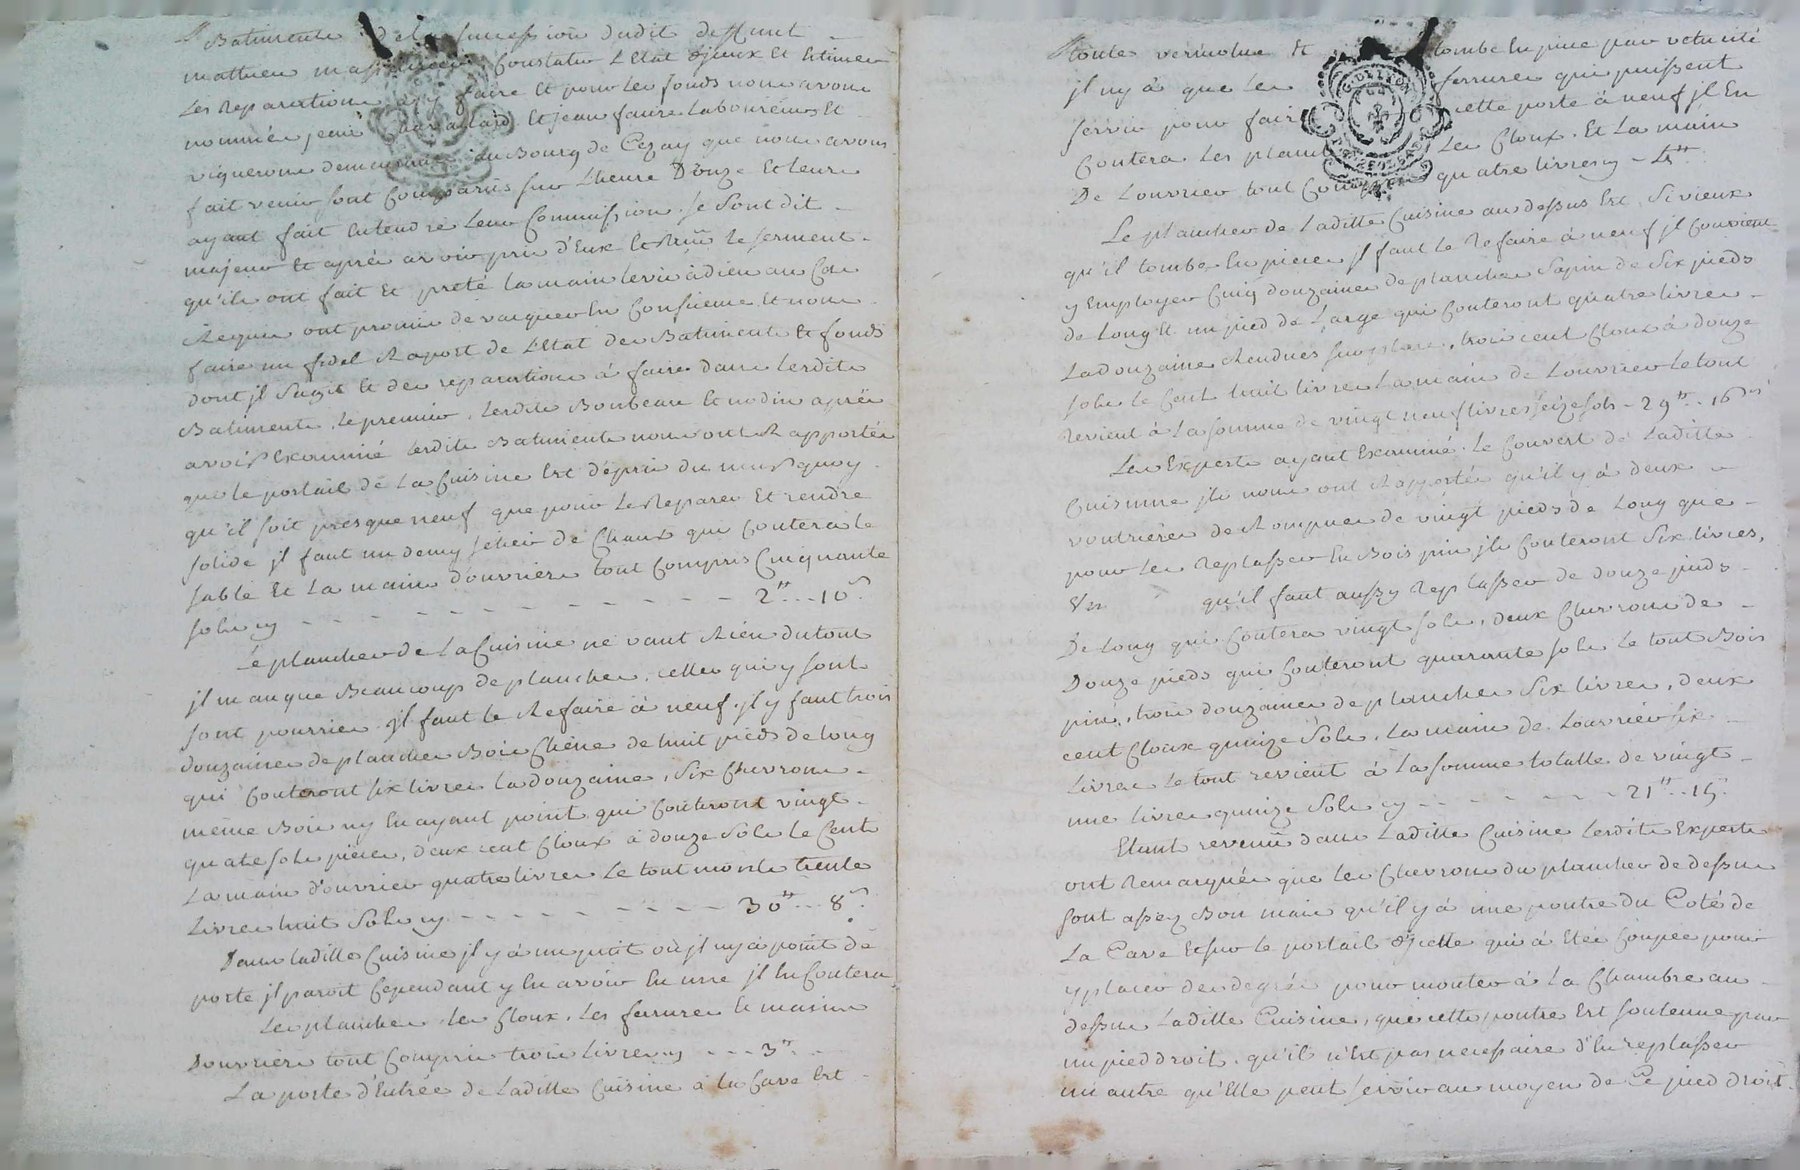 Batiments de la succession dudit deffunt
mathieu constater L'Etat d'jceux Et Estimer
Les Reparations a y faire Et pour Les fonds nous avons
nommés jean Et jean faure Laboureurs Et
vignerons demeurants au Bourg de Cezay que nous avons
fait venir sont comparus sur L'heure D'onze Et Leurs
ayant fait Entendre Leur Commission, se sont dit
majeurs Et après avoir pris d'Eux Le serment
qu'ils ont fait Et preté La main levée à dieu au Cas
Requis ont promis de vacquer En Consience Et nous
faire un fidel Raport de L'Etat des Batiments Et fonds
dont jl s'agit Et des reparations à faire dans Lesdits
Batiments, Le premier, Lesdits Bonbeau Et nodin après
avoir Examiné Lesdits Batiments nous ont Rapportés
que le portail de La Cuisine Est dépris du mur quoy
qu'il soit presque neuf que pour Le Reparer Et rendre
solide jl faut un demy setier de Chaux que coutera le
sable Et La main d'ouvriers tout Compris Cinquante
sols cy - - - - - - - - - - 2tt..10s
Le plancher de La Cuisine ne vaut Rien du tout
jl manque Beaucoup de planches, celles qui y sont
sont pourries, jl faut le Refaire à neuf, jl y faut trois
douzaines de planches Bois Chêne de huit pieds de long
qui Couteront six livres La douzaine, six Chevrons
même Bois n'y En ayant point qui Couteront vingt
quatre sols pièce, deux cent Cloux à douze sols le Cent
La main d'ouvrier quatre livres Le tout monte trente
Livres huit sols cy - - - - - - - - 30tt..8s
Dans Laditte Cuisine jl y à un où jl n'y à point de
porte jl paroit Cependant y En avoir En une jl En Coutera
Les planches, les Cloux, Les ferrures Et mains
D'ouvriers tout Compris trois Livres cy - - - 3tt
La porte d'Entrée de Laditte Cuisine à La Cave Est
toute vermolue Et tombe En pièce par vetusté
jl n'y à que Les ferrures qui puissent
servir pour faire cette porte à neuf jl En
Coutera Les planches Les Cloux, Et La main
De L'ouvrier tout Compris quatre livres cy - 4tt
Le plancher de Laditte Cuisine au dessus Est si vieux
qu'il tombe En pièces jl faut Le Refaire à neuf jl Convient
y Employer Cinq douzaines de planches Sapin de Six pieds
de Long Et un pied de Large qui Couteront quatre livres
La douzaine Rendues sur place, trois cent Cloux à douze
sols le Cent huit livres La main de L'ouvrier Le tout
Revient à La somme de vingt neuf livres seize sols - 29tt..16s
Les Experts ayant Examiné Le Couvert de Laditte
Cuisinne jls nous ont Rapportés qu'il y à deux
de Rompues de vingt pieds de Long que
pour Les Replasser En Bois pin jls Couteront Six livres,
Un qu'il faut aussy Replasser de douze pieds
De Long qui Coutera vingt sols, deux Chevrons de
Douze pieds qui Couteront quarante sols Le tout Bois
pin, trois douzaines de planches Six livres, deux
cent Cloux quinze Sols, La main de L'ouvrier six
Livres Le tout revient à La somme totalle de vingt
une livres quinze sols cy - - - - - - - 21tt..15s
Etant revenu dans Laditte Cuisine Lesdits Experts
ont Remarqués que les Chevrons du plancher de dessus
sont assez Bon mais qu'il y à une poutre du Coté de
La Cave Et sur le portail d'jcelle qui à Eté Coupée pour
y placer des degrés pour monter à La Chambre au
dessus Laditte Cuisine, que cette poutre Est soutenue par
un pied droit, qu'il n'Est pas necessaire d'En replasser
un autre qu'Elle peut servir au moyen de Ce pied droit